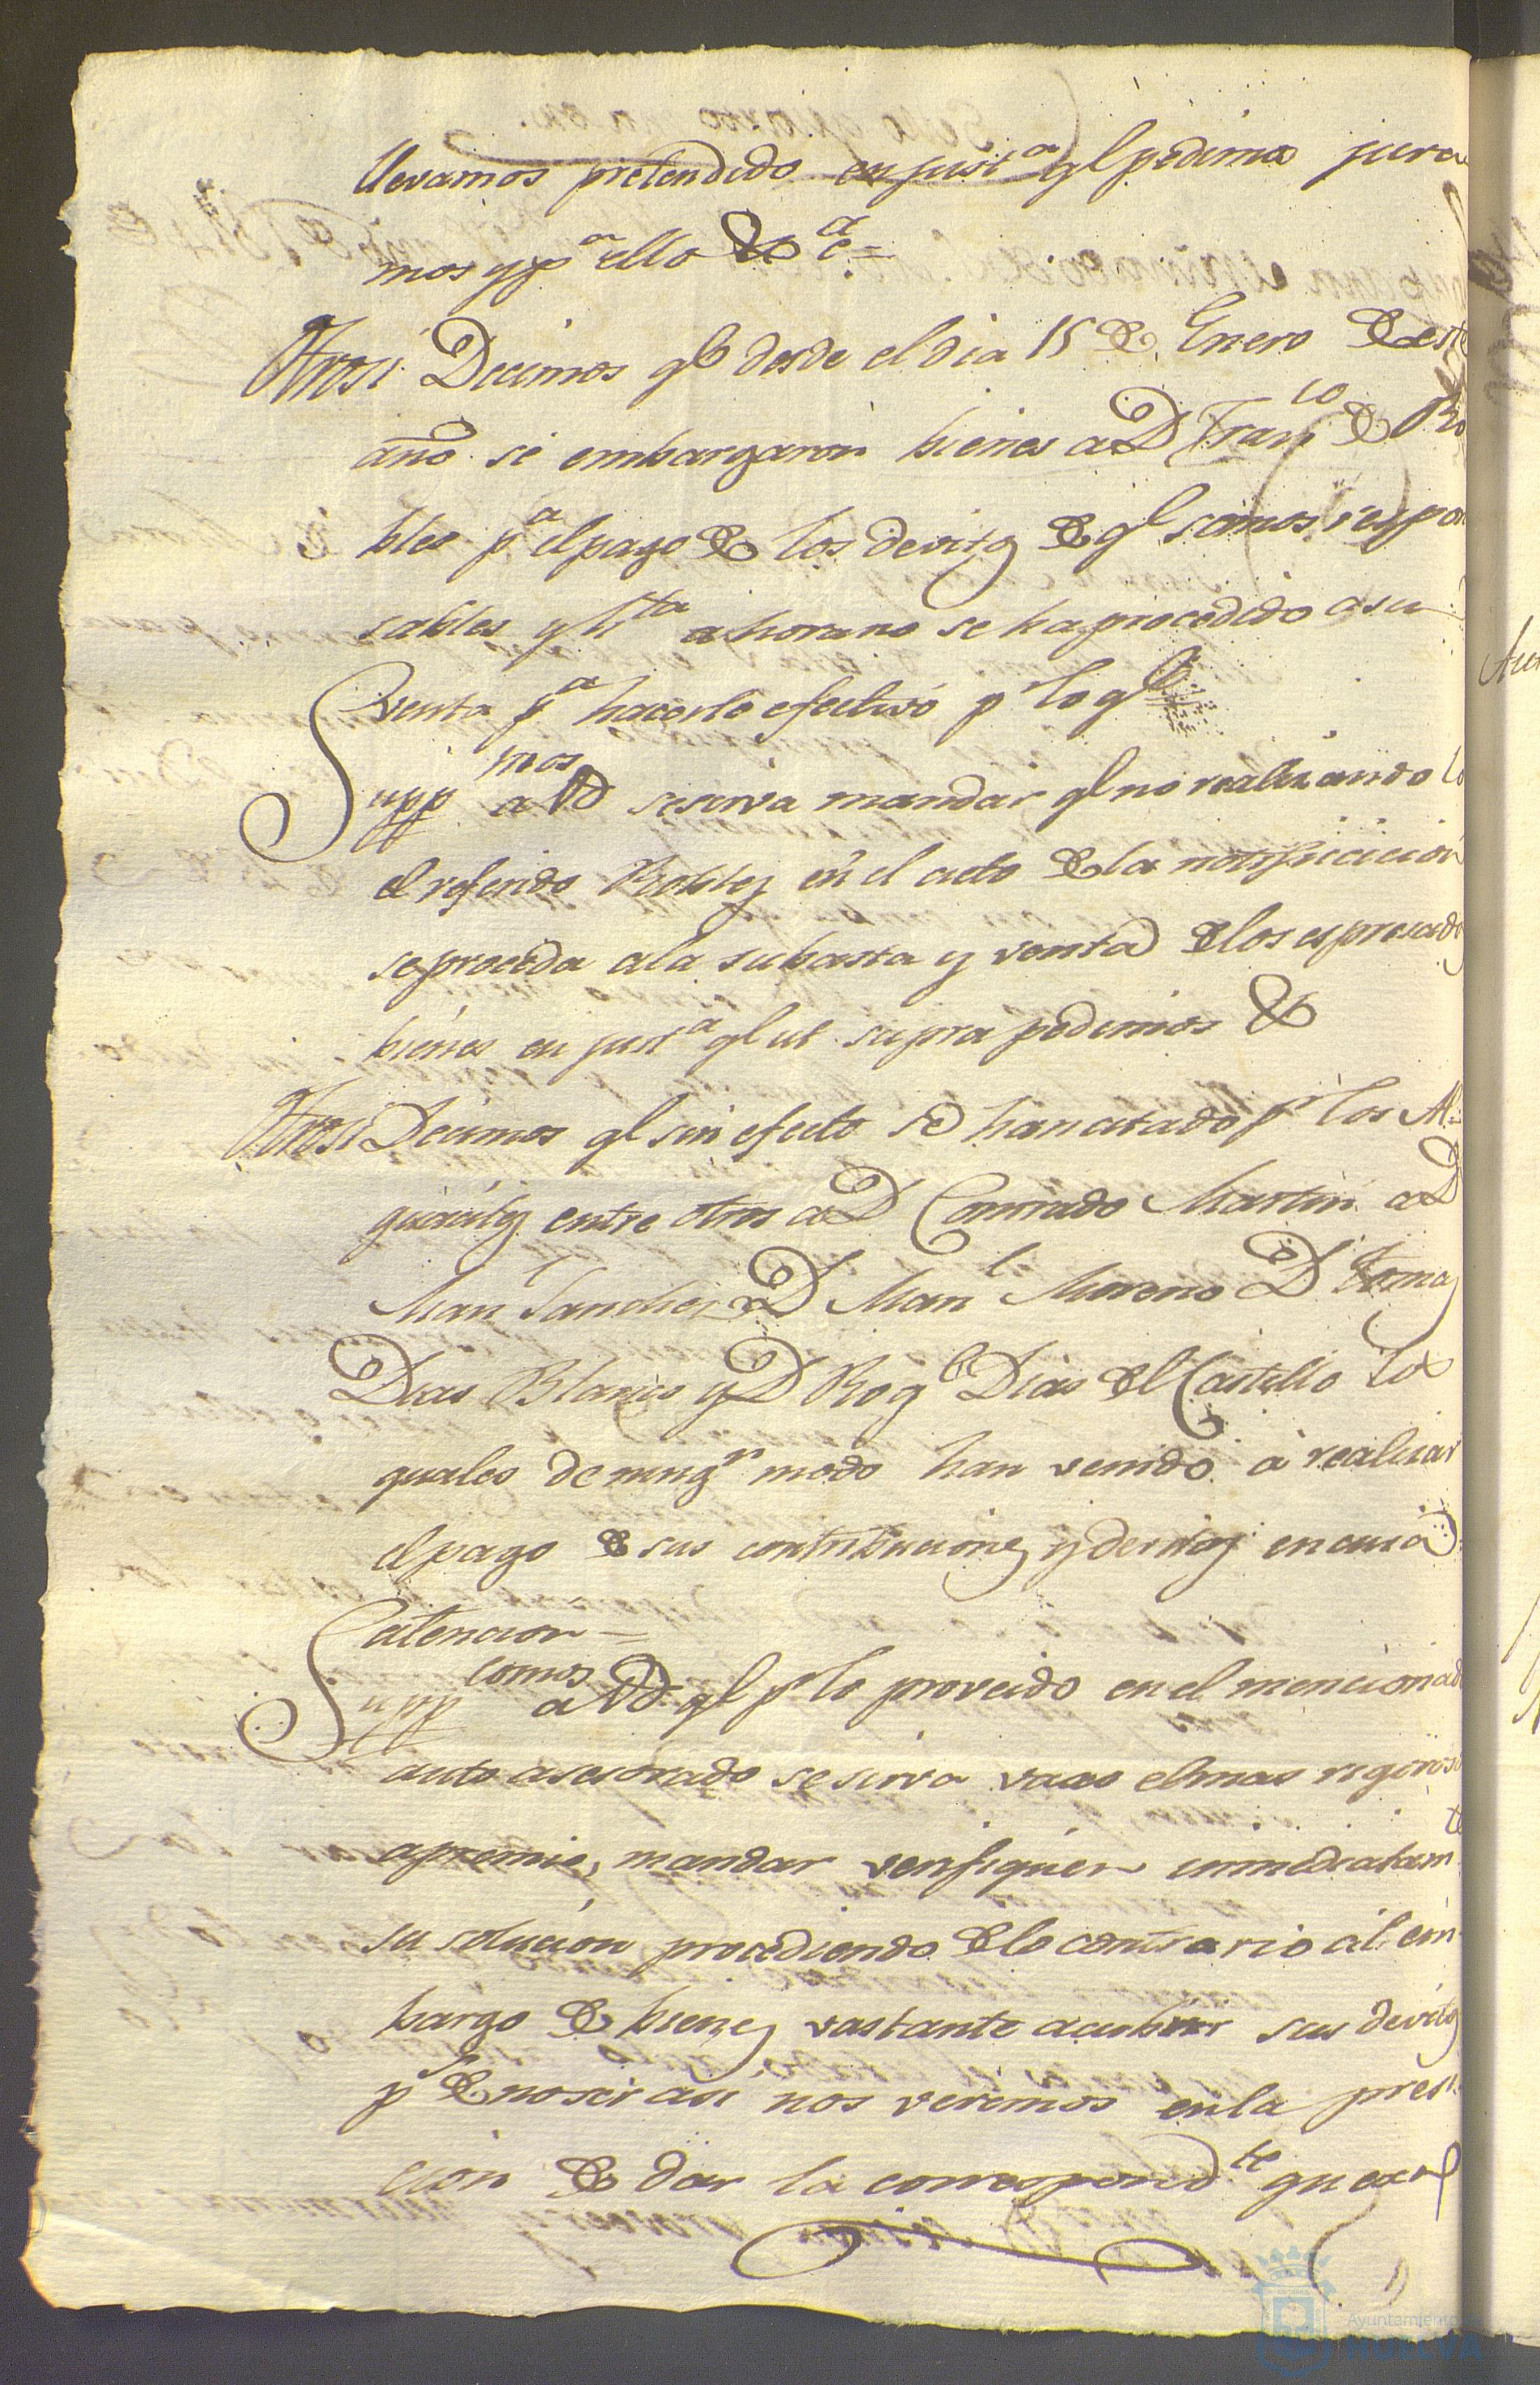 llevamos pretendido en just.a q.e pedimos jura
mos y p.a ello &.a =
Otrosi Decimos q.e desde el dia 15 de Enero de este
año se embargaron bienes a D Fran.co de Ro
bles p.a el pago de los devitos de q.e somos respon
sables y h.ta ahora no se ha procedido a su
venta p.a hacerlo efectivo p.r lo q.e
Supp.mos a Vd se sirva mandar q.e no realizando lo
el referido Robles en el acto de la notificacion
se proceda a la subasta y venta de los espresados
bienes en just.a q.e ut supra pedimos &
Otrosi Decimos q.e sin efecto se han citado p.r los Al
guaciles entre otros a D Conrado Martin a D
Man.l Sanchez a D Man.l Moreno D Tomas
Dias Blanco y D Rog.o Dias del Castillo los
quales de ning.n modo han venido á realizar
el pago de sus contribuciones y devitos en cuia
atencion =
Supp.comos a Vd q.e p.r lo proveido en el mencionado
auto asesorado se sirva vaxo el mas rigoroso
apremio, mandar verifiquen inmediatam.te
su solucion procediendo de lo contrario al em
bargo de bienes vastante a cubrir sus devitos
p.s de no ser asi nos veremos en la preci
cion de dar la correspond.te quexa
Ayuntamiento de
HUELVA